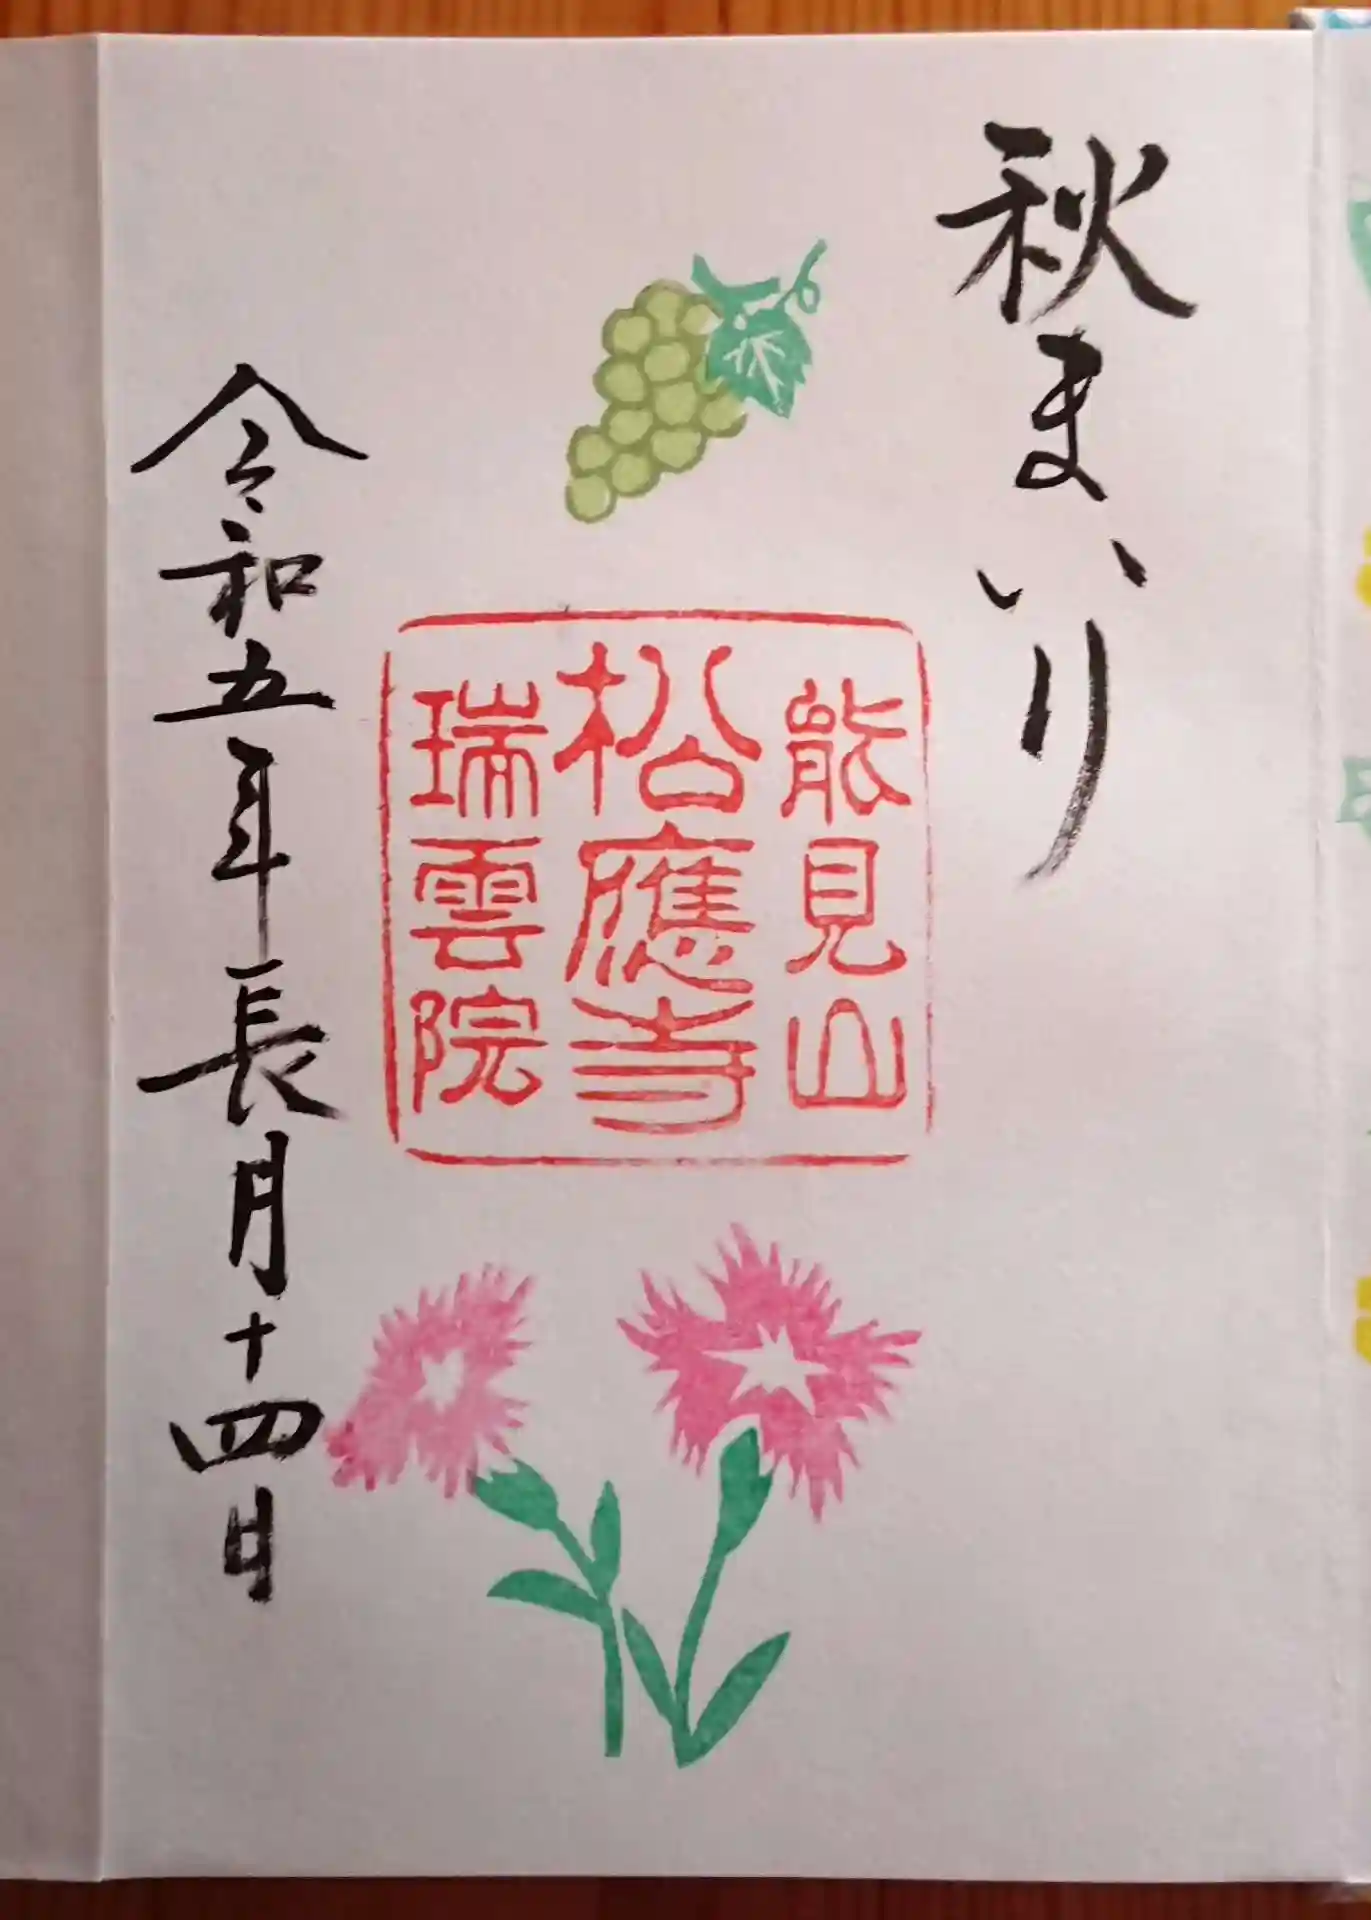 秋まいり
能見山
松應寺
瑞雲院
令和五年長月十四日